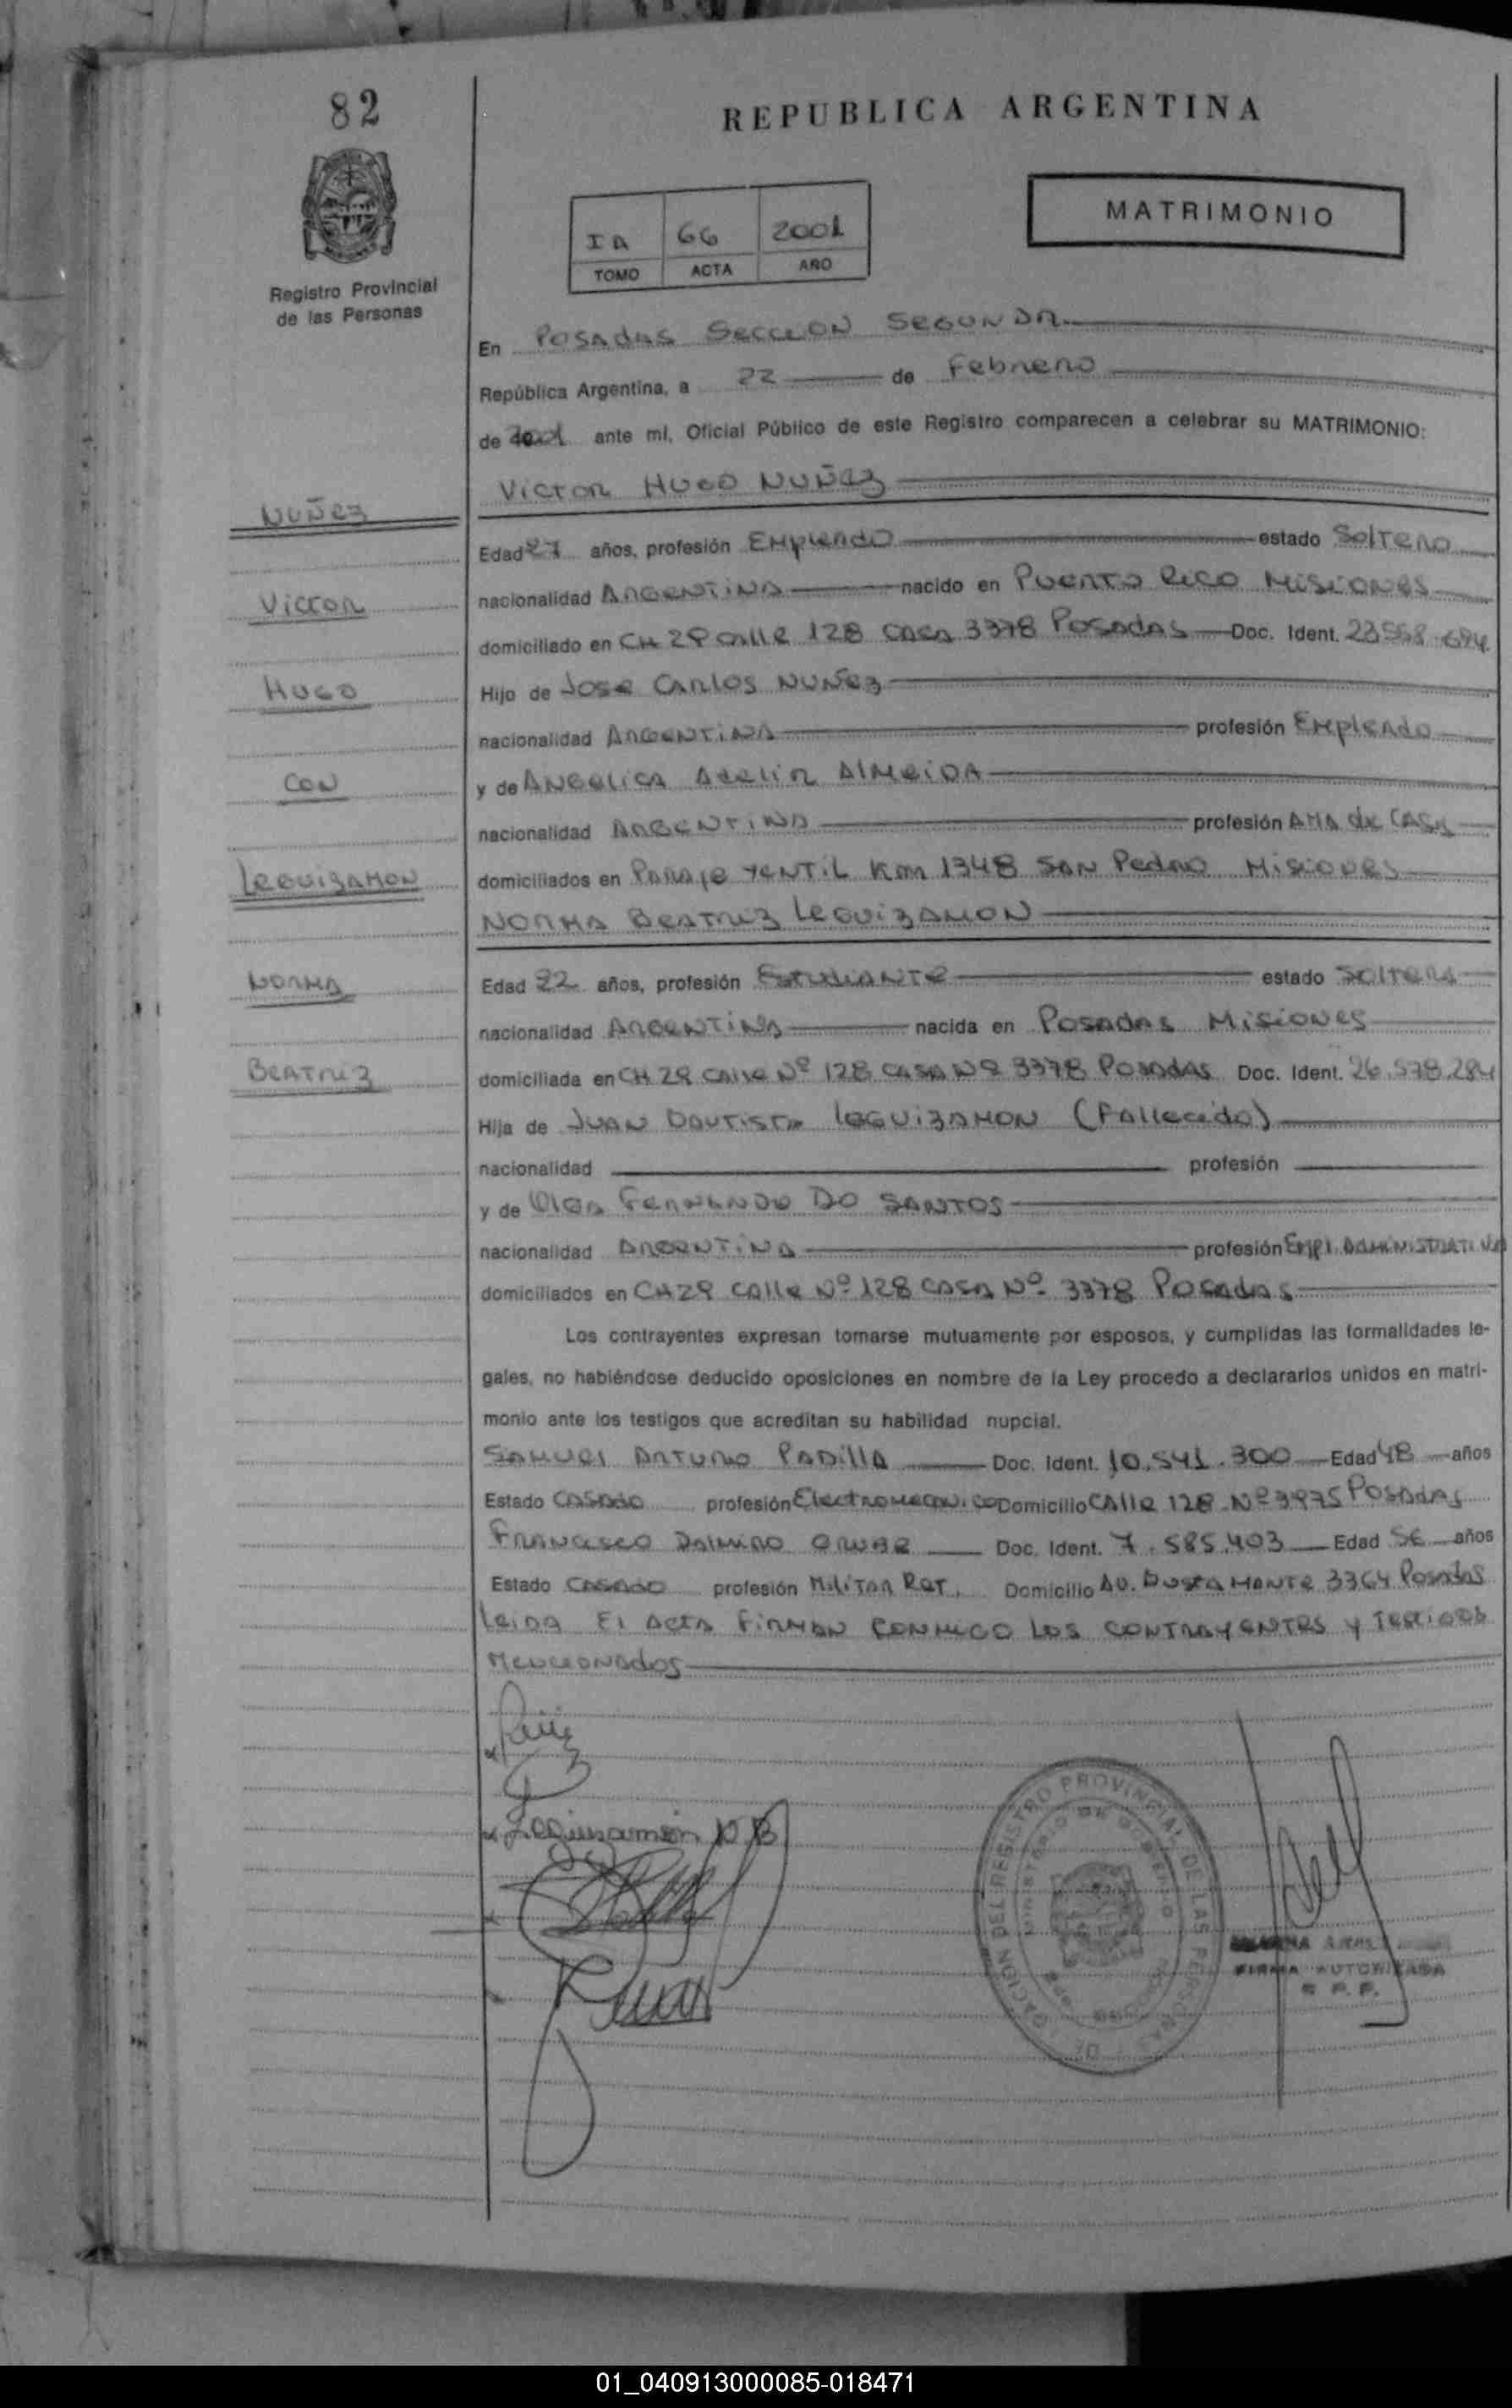 82
REPUBLICA ARGENTINA
MATRIMONIO
IA 66 2001
TOMO ACTA AÑO
Registro Provincial
de las Personas
En POSADAS SECCION SEGUNDA
República Argentina, a 22 de Febrero
de 2001 ante mi, Oficial Público de este Registro comparecen a celebrar su MATRIMONIO:
VICTOR HUGO NUÑEZ
NUÑEZ
Edad 27 años, profesión EMPLEADO estado SOLTERO
nacionalidad ARGENTINA nacido en PUERTO RICO MISIONES
VICTOR
domiciliado en CH 29 CALLE 128 CASA 3378 POSADAS Doc. Ident. 23.568.694
HUGO
Hijo de JOSE CARLOS NUÑEZ
nacionalidad ARGENTINA profesión EMPLEADO
CON
y de ANGELICA ALMEIDA
nacionalidad ARGENTINA profesión AMA de CASA
LEGUIZAMON
domiciliados en PARAJE YENTIL Km 1348 SAN PEDRO MISIONES
NORMA BEATRIZ LEGUIZAMON
NORMA
Edad 22 años, profesión ESTUDIANTE estado SOLTERA
nacionalidad ARGENTINA nacida en POSADAS MISIONES
BEATRIZ
domiciliada en CH 29 CALLE Nº 128 CASA Nº 3378 POSADAS Doc. Ident. 26.578.284
Hija de JUAN BAUTISTA LEGUIZAMON (Fallecido)
nacionalidad profesión
y de OLGA FERNANDO DO SANTOS
nacionalidad ARGENTINA profesión EMPL. ADMINISTRATIVA
domiciliados en CH 29 CALLE Nº 128 CASA Nº 3378 POSADAS
Los contrayentes expresan tomarse mutuamente por esposos, y cumplidas las formalidades le-
gales, no habiéndose deducido oposiciones en nombre de la Ley procedo a declararlos unidos en matri-
monio ante los testigos que acreditan su habilidad nupcial.
SAMUEL ARTURO PADILLA Doc. Ident. 10.541.300 Edad 48 años
Estado CASADO profesión ELECTROMECANICO Domicilio CALLE 128 Nº 3975 POSADAS
FRANCISCO DALMIRO Doc. Ident. 7.585.403 Edad años
Estado CASADO profesión MILITAR RET. Domicilio AV. BUSTAMANTE 3364 POSADAS
LEIDA EL ACTA FIRMAN CONMIGO LOS CONTRAYENTES Y TESTIGOS
MENCIONADOS
Leguizamón N B
DELEGACION DEL REGISTRO PROVINCIAL DE LAS PERSONAS
MINISTERIO DE GOBIERNO
FIRMA AUTORIZADA
01_040913000085-018471